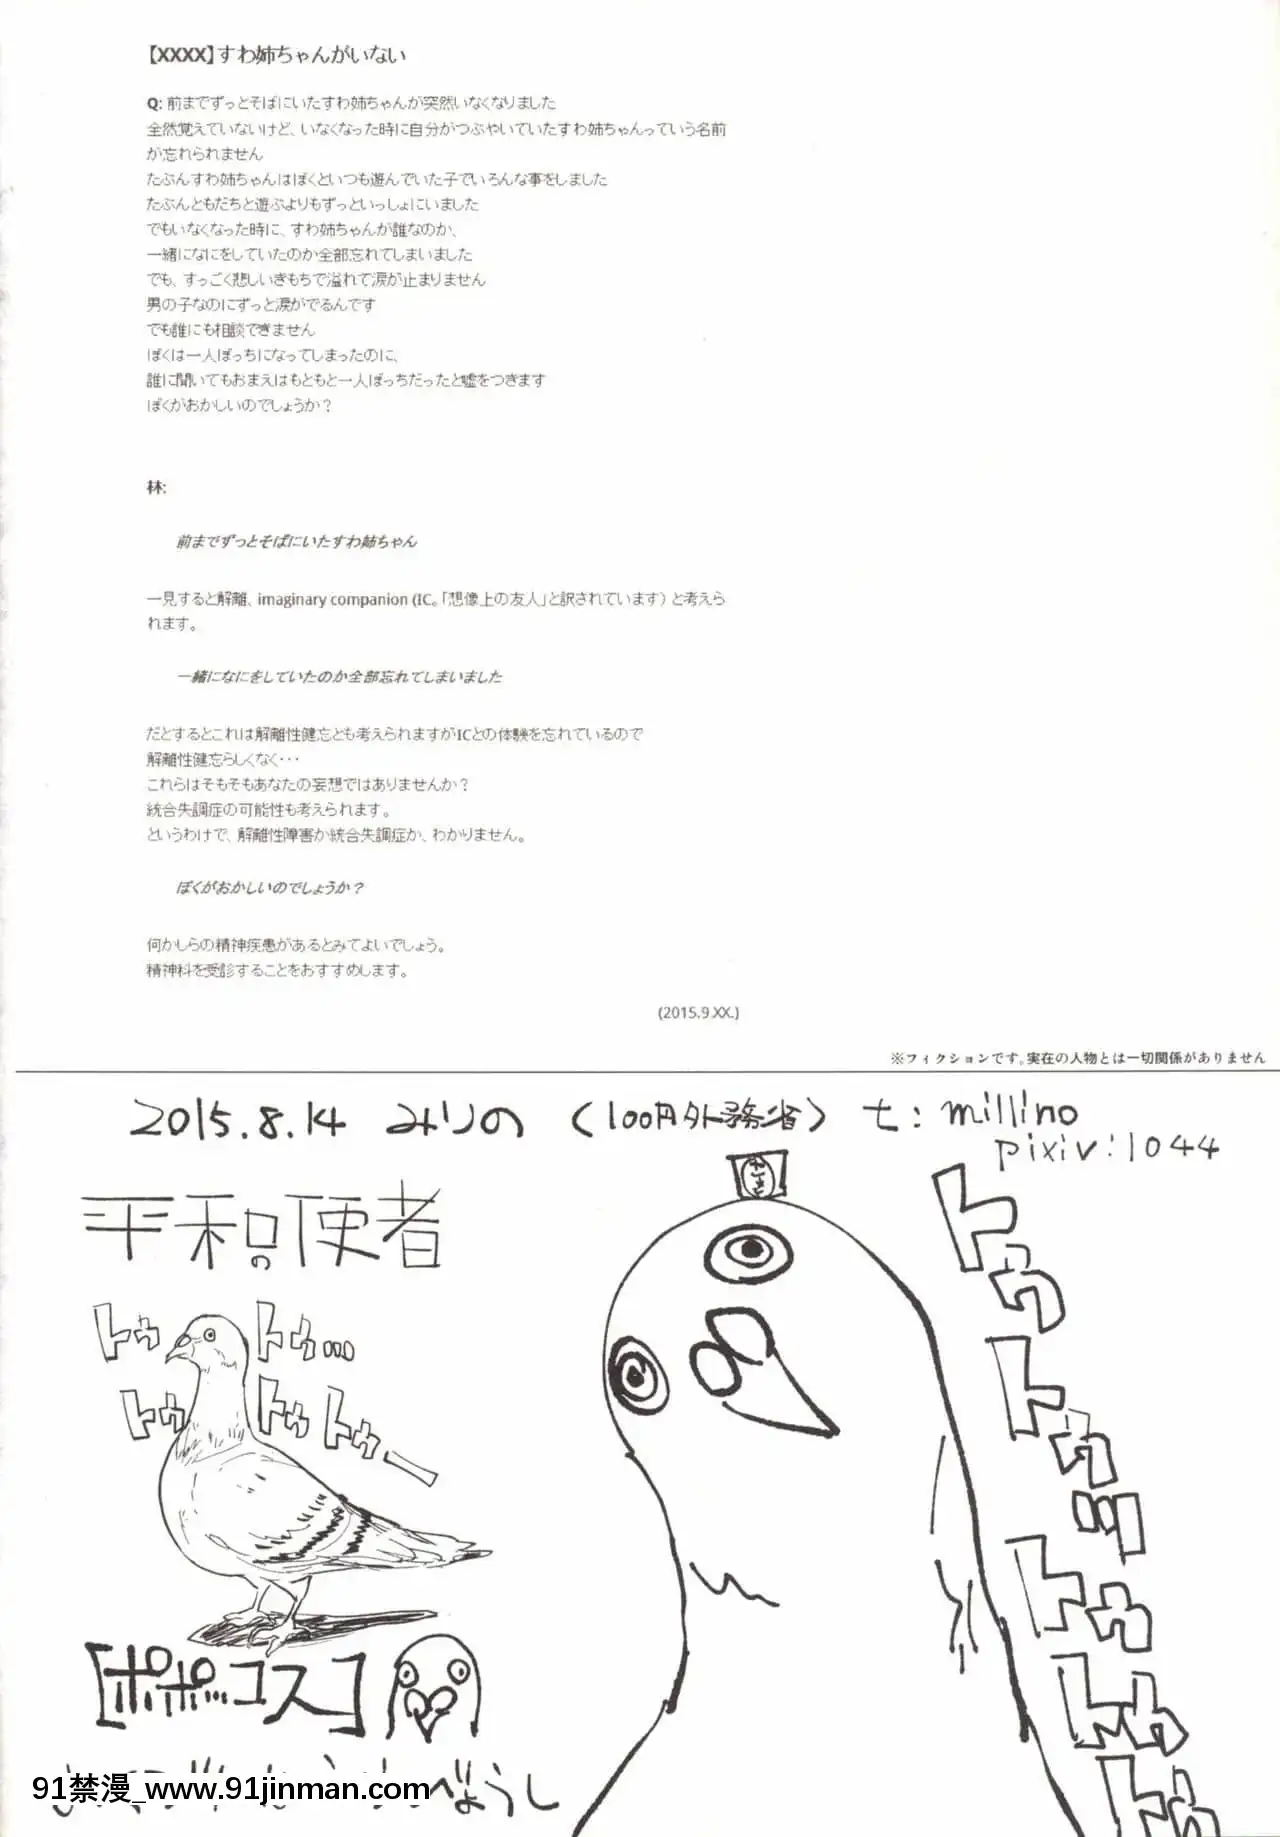 【XXXX】すわ姉ちゃんがいない
Q: 前までずっとそばにいたすわ姉ちゃんが突然いなくなりました
全然覚えていないけど、いなくなった時に自分がつぶやいていたすわ姉ちゃんっていう名前
が忘れられません
たぶんすわ姉ちゃんはぼくといつも遊んでいた子でいろんな事をしました
たぶんともだちと遊ぶよりもずっといっしょにいました
でもいなくなった時に、すわ姉ちゃんが誰なのか、
一緒になにをしていたのか全部忘れてしまいました
でも、すっごく悲しいきもちで溢れて涙が止まりません
男の子なのにずっと涙がでるんです
でも誰にも相談できません
ぼくは一人ぼっちになってしまったのに、
誰に聞いてもおまえはもともと一人ぼっちだったと嘘をつきます
ぼくがおかしいのでしょうか？
林:
前までずっとそばにいたすわ姉ちゃん
一見すると解離、imaginary companion (IC。「想像上の友人」と訳されています) と考えら
れます。
一緒になにをしていたのか全部忘れてしまいました
だとするとこれは解離性健忘とも考えられますがICとの体験を忘れているので
解離性健忘らしくなく・・・
これらはそもそもあなたの妄想ではありませんか？
統合失調症の可能性も考えられます。
というわけで、解離性障害か統合失調症か、わかりません。
ぼくがおかしいのでしょうか？
何かしらの精神疾患があるとみてよいでしょう。
精神科を受診することをおすすめします。
(2015.9.XX.)
※フィクションです。実在の人物とは一切関係がありません
2015.8.14 みりの (100円外務省) t: millino
pixiv:1044
平和の使者
トゥ トゥ…
トゥ トゥ トゥー
トゥ
トゥッ
トゥ
トゥ
トゥ
[ポポッコス]
びょうし
91禁漫_www.91jinman.com